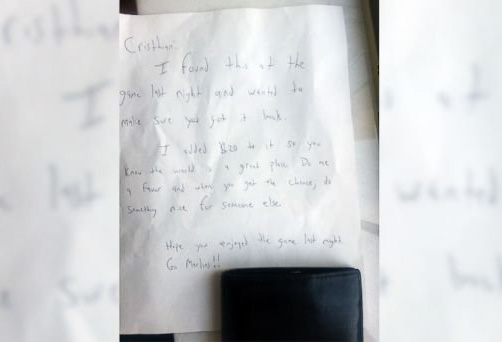 Cristhian..
I found this at the
game last night and wanted to
make sure you got it back.
I added $20 to it so you
know the world is a great place. Do me
a favor and when you get the chance, do
something nice for someone else.
Hope you enjoyed the game last night.
Go Marlins!!